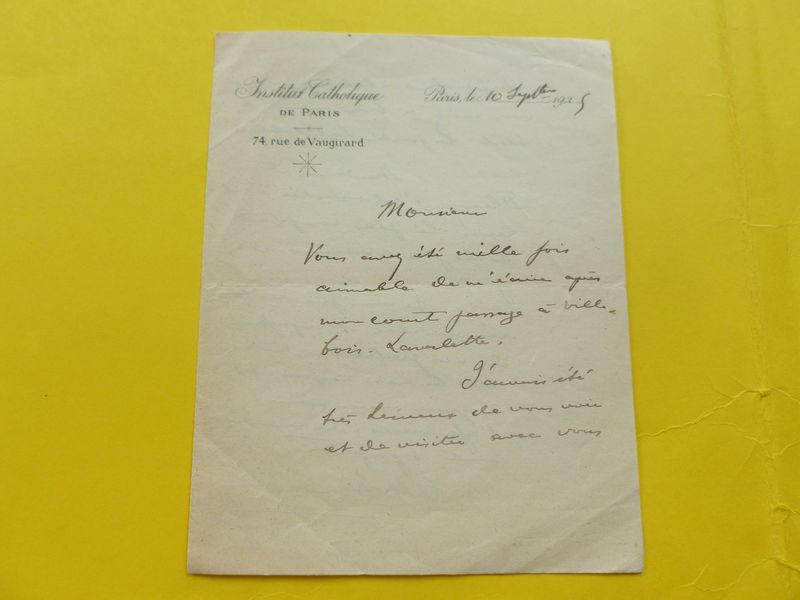 Institut Catholique
DE PARIS
74, rue de Vaugirard
Paris, le 10 Septbre 1925
Monsieur
Vous avez été mille fois
aimable de m'écrire après
mon court passage à Ville-
bois-Lavalette.
J'aurais été
très heureux de vous voir
et de visiter avec vous